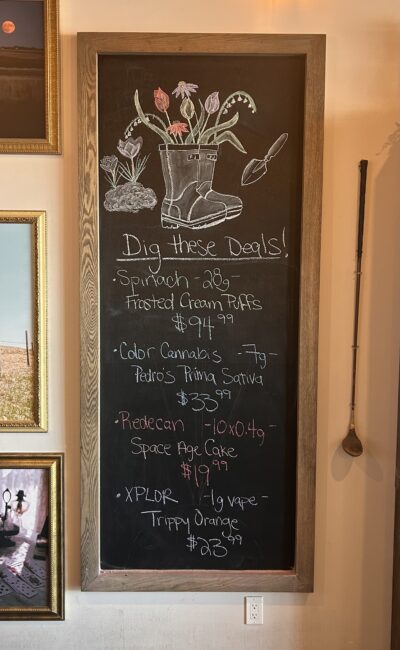 Dig these Deals!
• Spinach - 28g -
Frosted Cream Puffs
$94.99
• Color Cannabis - 7g -
Pedro's Prima Sativa
$33.99
• Redecan - 10x0.4g -
Space Age Cake
$19.99
• XPLOR - 1g vape -
Trippy Orange
$23.99